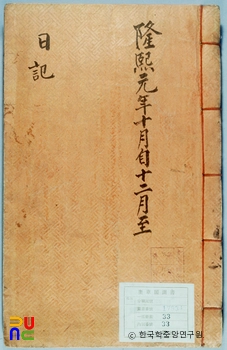 隆熙元年十月自十二月至
日記
33
33
PUNC
© 한국학중앙연구원